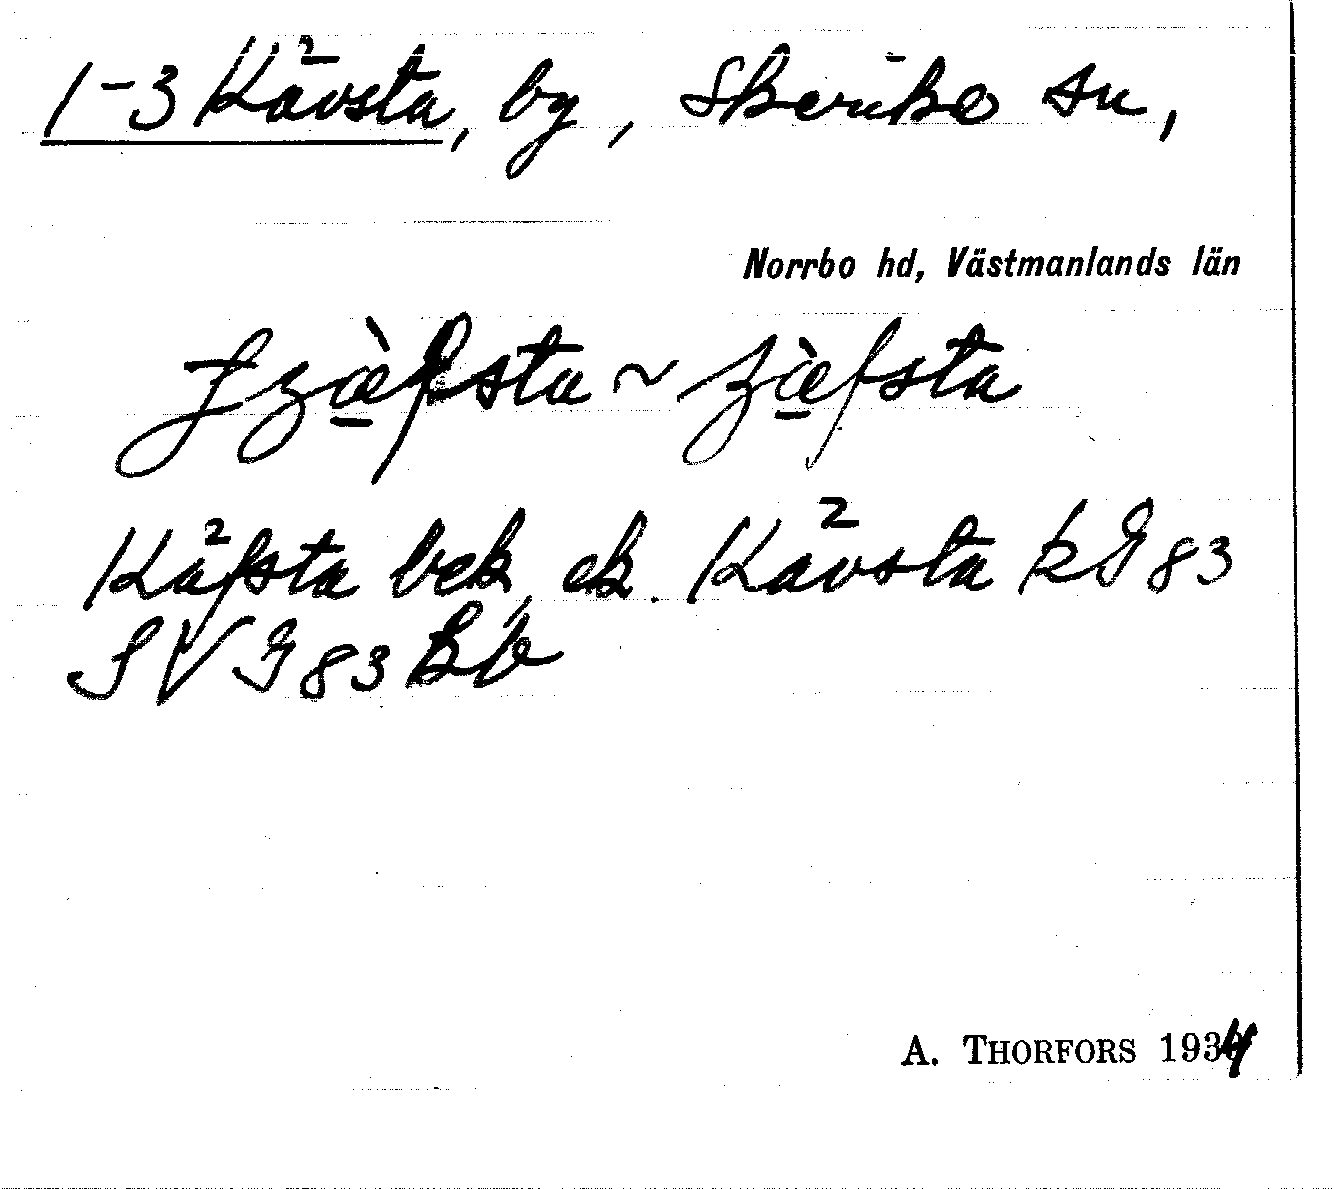 1-3 Kävsta, by, Skerike sn,
Norrbo hd, Västmanlands län
ʒæ̀fsta
Käfsta bek, ek. Kävsta kG83
SV G83 Bb
A. THORFORS 1934